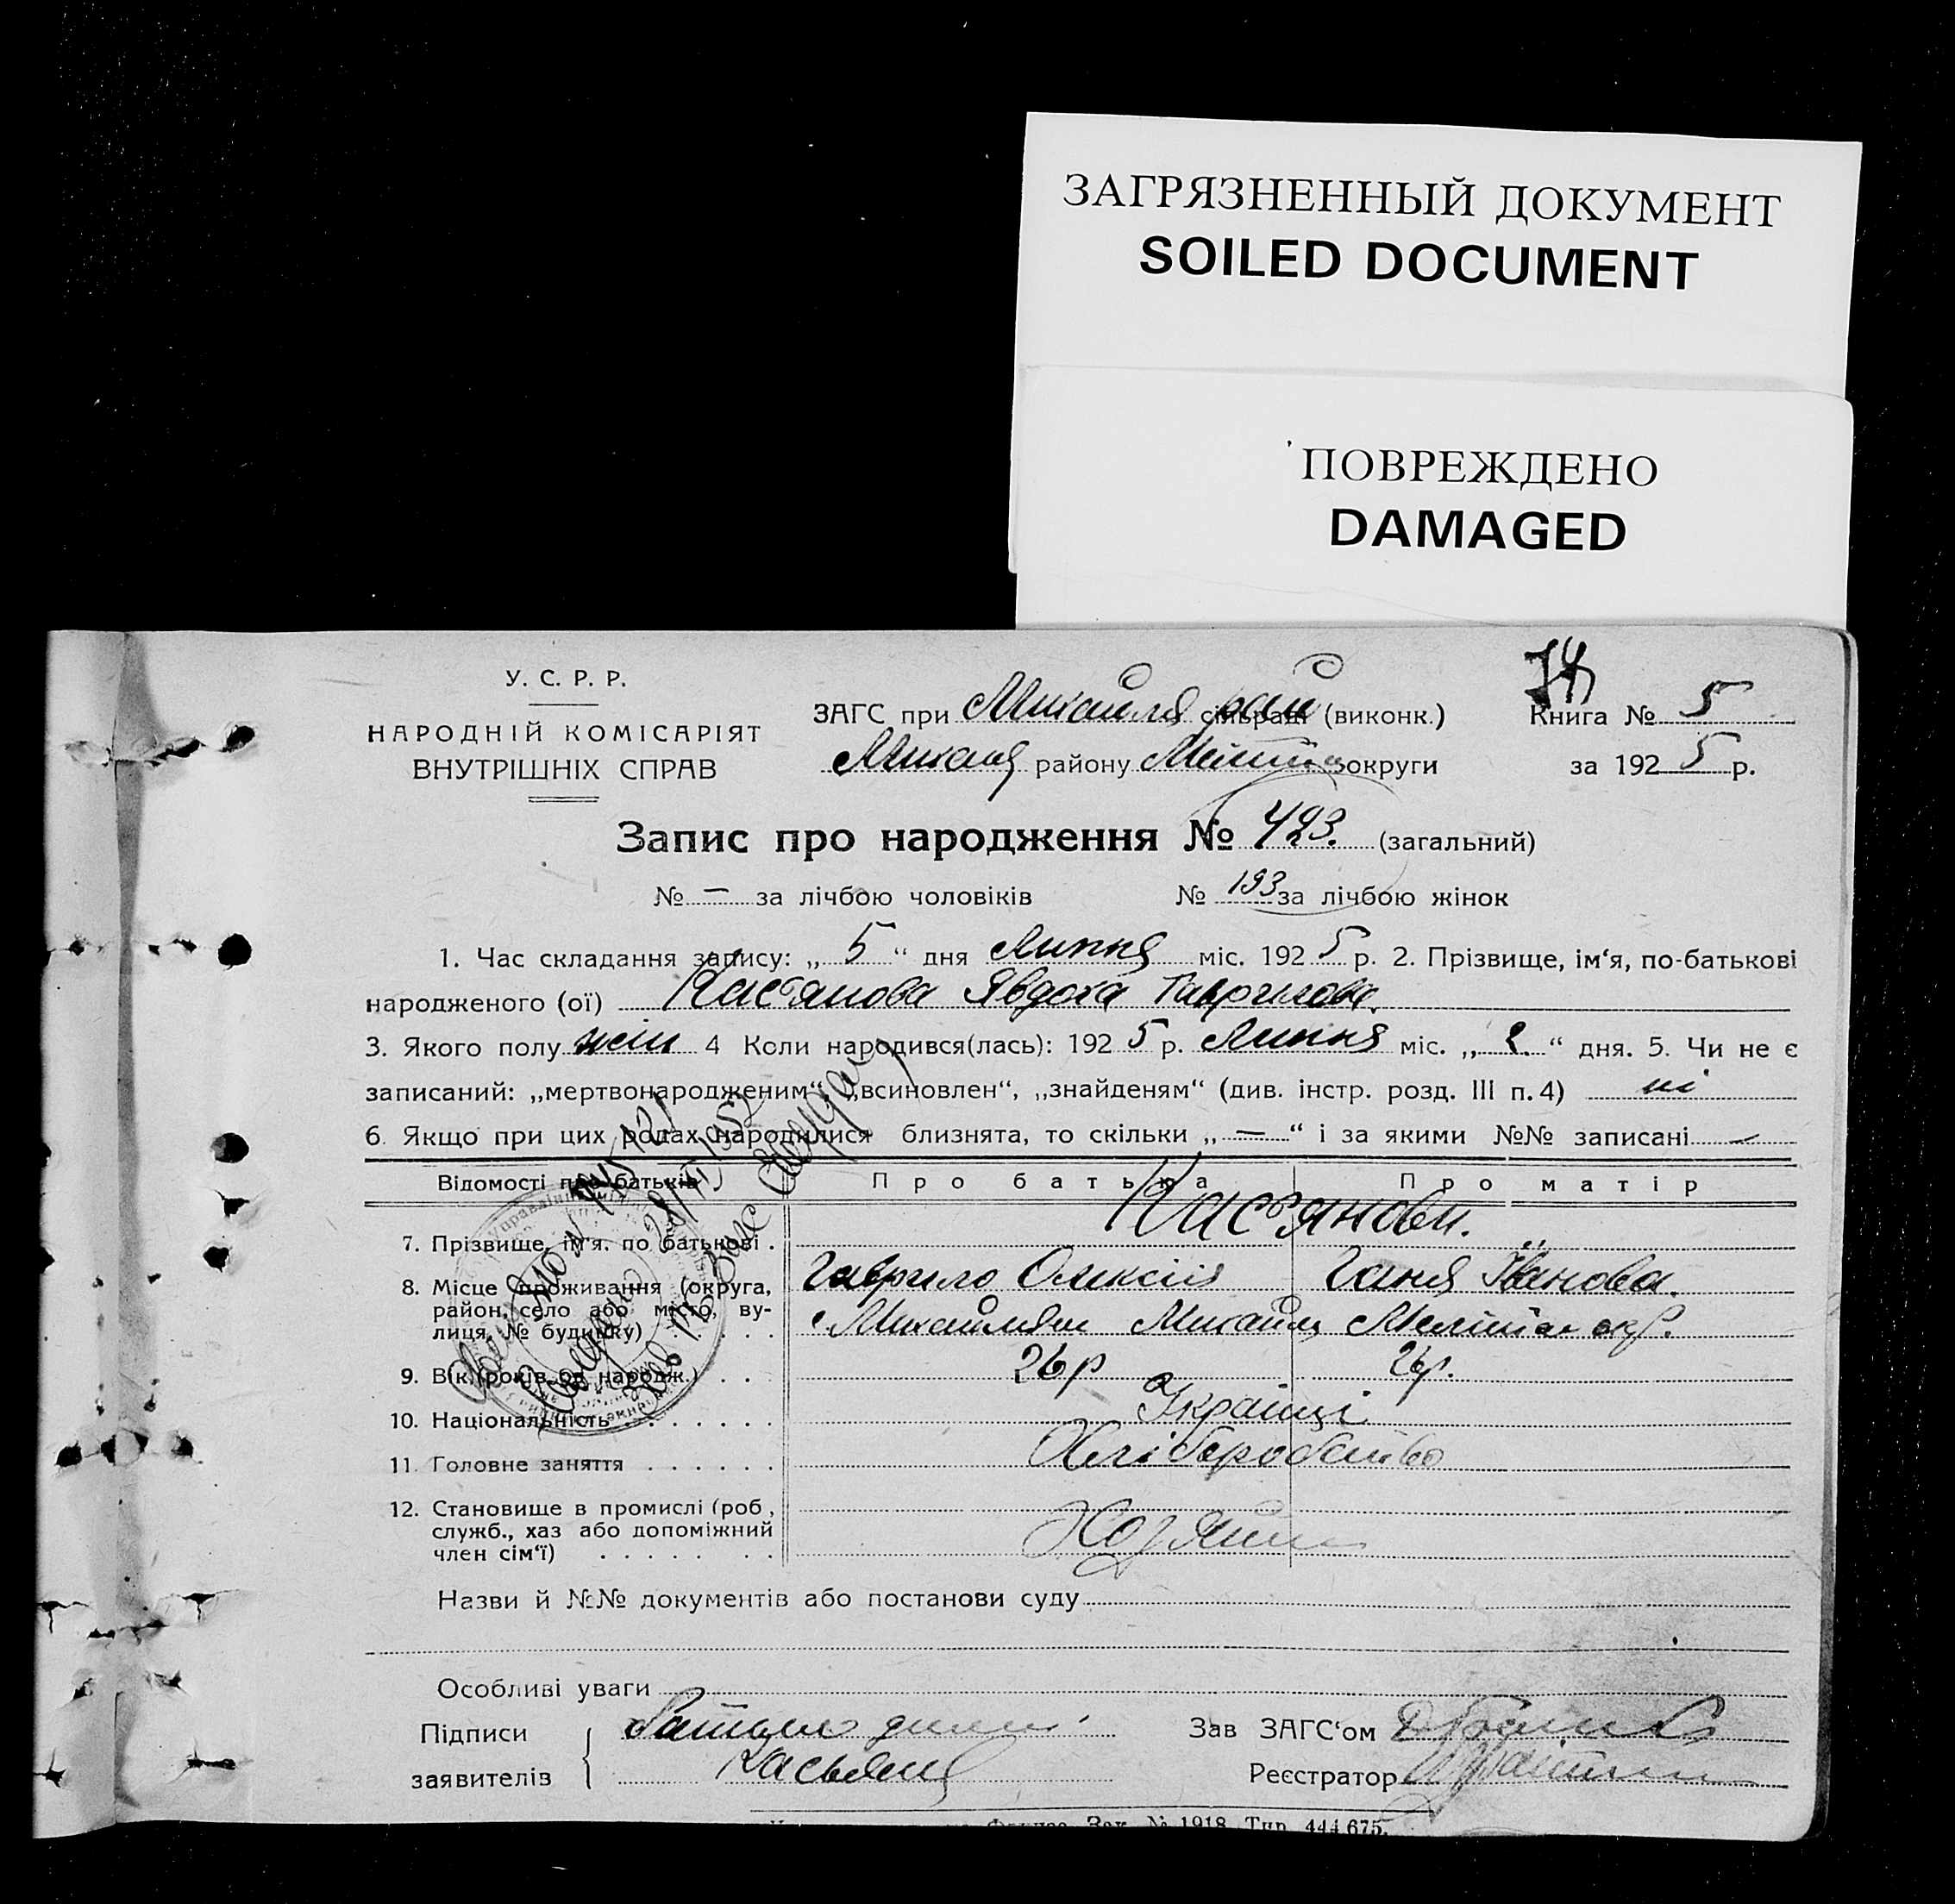 ЗАГРЯЗНЕННЫЙ ДОКУМЕНТ
SOILED DOCUMENT
ПОВРЕЖДЕНО
DAMAGED
У. С. Р. Р.
НАРОДНІЙ КОМІСАРІЯТ
ВНУТРІШНІХ СПРАВ
74
ЗАГС при Михайля рай сільраді (виконк.) Книга № 5
району округи за 1925 р.
Запис про народження № 423. (загальний)
№ — за лічбою чоловіків № 193 за лічбою жінок
1. Час складання запису: „ 5 “ дня Липня міс. 1925 р. 2. Прізвище, ім‘я, по-батькові
народженого (ої) Кас'янова Явдоха Гаврилова.
3. Якого полу жін 4 Коли народився(лась): 1925 р. Липня міс. „ 2. “ дня. 5. Чи не є
записаний: „мертвонародженим“, „всиновлен“, „знайденям“ (див. інстр. розд. III п. 4) ні
6. Якщо при цих родах народилися близнята, то скільки „ — “ і за якими №№ записані —
Відомості про батьків Про батька Про матір
Кас'янови.
7. Прізвище, ім'я. по батькові .
Гаврило Олексій Ганя Іванова.
8. Місце проживання (округа,
район, село або місто, ву-
лиця, № будинку) . . . окр.
9. Вік (років од народж.) . . 26 р 26 р.
10. Національність . . . . . . Українці
11. Головне заняття . . . . . . Хліборобство
12. Становище в промислі (роб,
служб., хаз або допоміжний
член сім‘ї) . . . . . . .
Назви й №№ документів або постанови суду
Особливі уваги
Підписи Зав ЗАГС‘ом
заявителів Реєстратор
Зак. № 1918 Тир. 444.675.